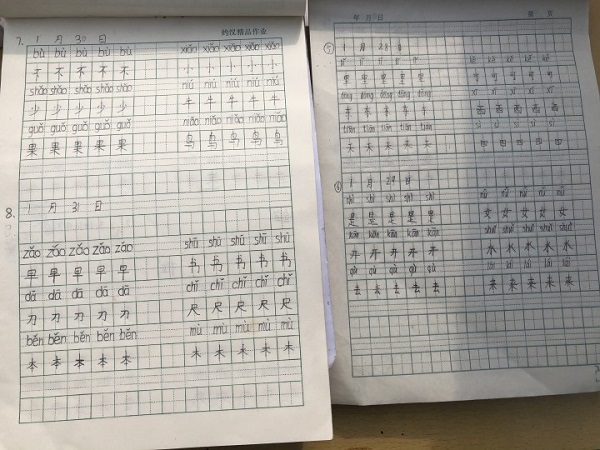 精品作业
7. 1 月 30 日
bù bù bù bù bù xiǎo xiǎo xiǎo xiǎo xiǎo
不 不 不 不 不 小 小 小 小 小
shǎo shǎo shǎo shǎo shǎo niú niú niú niú niú
少 少 少 少 少 牛 牛 牛 牛 牛
guǒ guǒ guǒ guǒ guǒ niǎo niǎo niǎo niǎo niǎo
果 果 果 果 果 鸟 鸟 鸟 鸟 鸟
8. 1 月 31 日
zǎo zǎo zǎo zǎo zǎo shū shū shū shū shū
早 早 早 早 早 书 书 书 书 书
dā dā dā dā dā chǐ chǐ chǐ chǐ chǐ
刀 刀 刀 刀 刀 尺 尺 尺 尺 尺
běn běn běn běn běn mù mù mù mù mù
本 本 本 本 本 木 木 木 木 木
年 月 日 第 页
1 月 日
里 里 里 里 里
西 西 西 西 西
tiān tiān tiān tiān tiān sì sì sì sì sì
天 天 天 天 天 四 四 四 四 四
1 月 29 日
shì shì shì shì shì nǚ nǚ nǚ nǚ nǚ
是 是 是 是 是 女 女 女 女 女
kāi kāi kāi kāi kāi shuǐ shuǐ shuǐ shuǐ shuǐ
开 开 开 开 开 水 水 水 水 水
qù qù qù qù qù lái lái lái lái lái
去 去 去 去 去 来 来 来 来 来